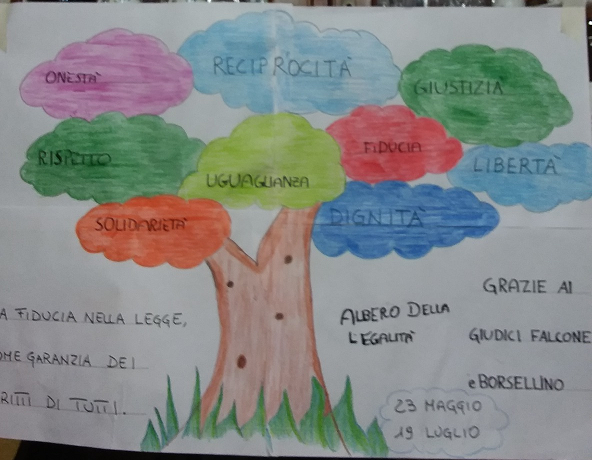 ONESTÀ
RECIPROCITÀ
GIUSTIZIA
RISPETTO
UGUAGLIANZA
FIDUCIA
LIBERTÀ
SOLIDARIETÀ
DIGNITÀ
A FIDUCIA NELLA LEGGE,
OME GARANZIA DEI
RITTI DI TUTTI.
ALBERO DELLA
LEGALITÀ
GRAZIE AI
GIUDICI FALCONE
e BORSELLINO
23 MAGGIO
19 LUGLIO